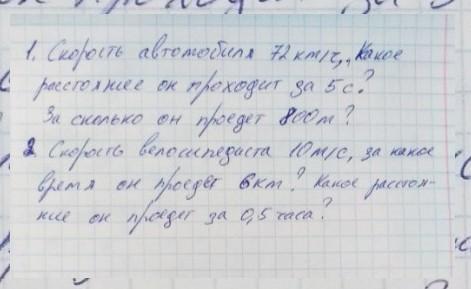 1. Скорость автомобиля 72 км/ч, какое
расстояние он проходит за 5 с.?
За сколько он проедет 800 м?
2. Скорость велосипедиста 10 м/с, за какое
время он проедет 6 км? Какое расстоя-
ние он проедет за 0,5 часа?